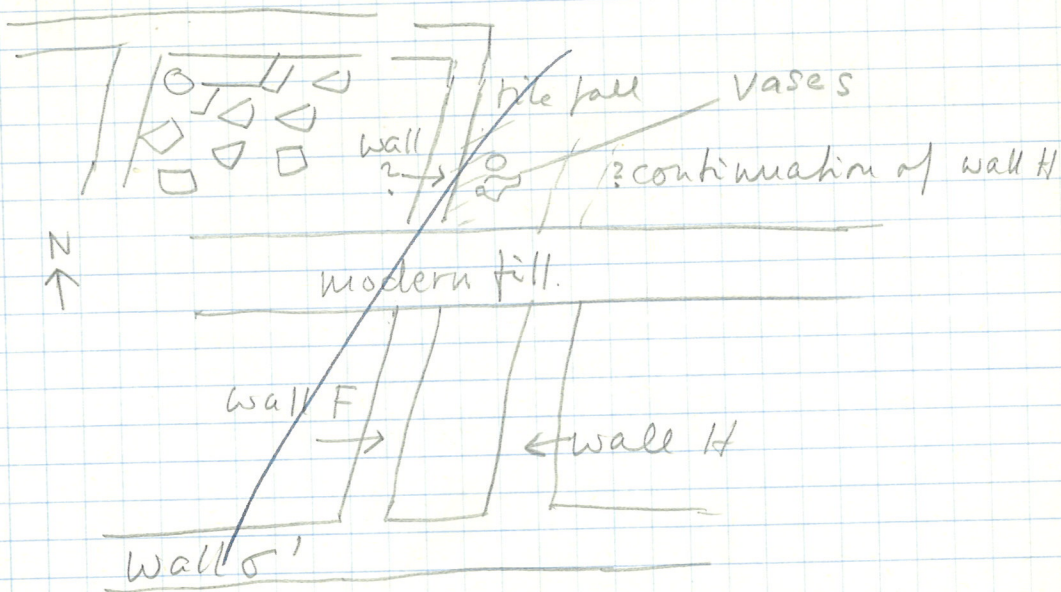 tile fall
vases
wall
?
? continuation of wall H
N
modern fill.
wall F
wall H
wall σ'